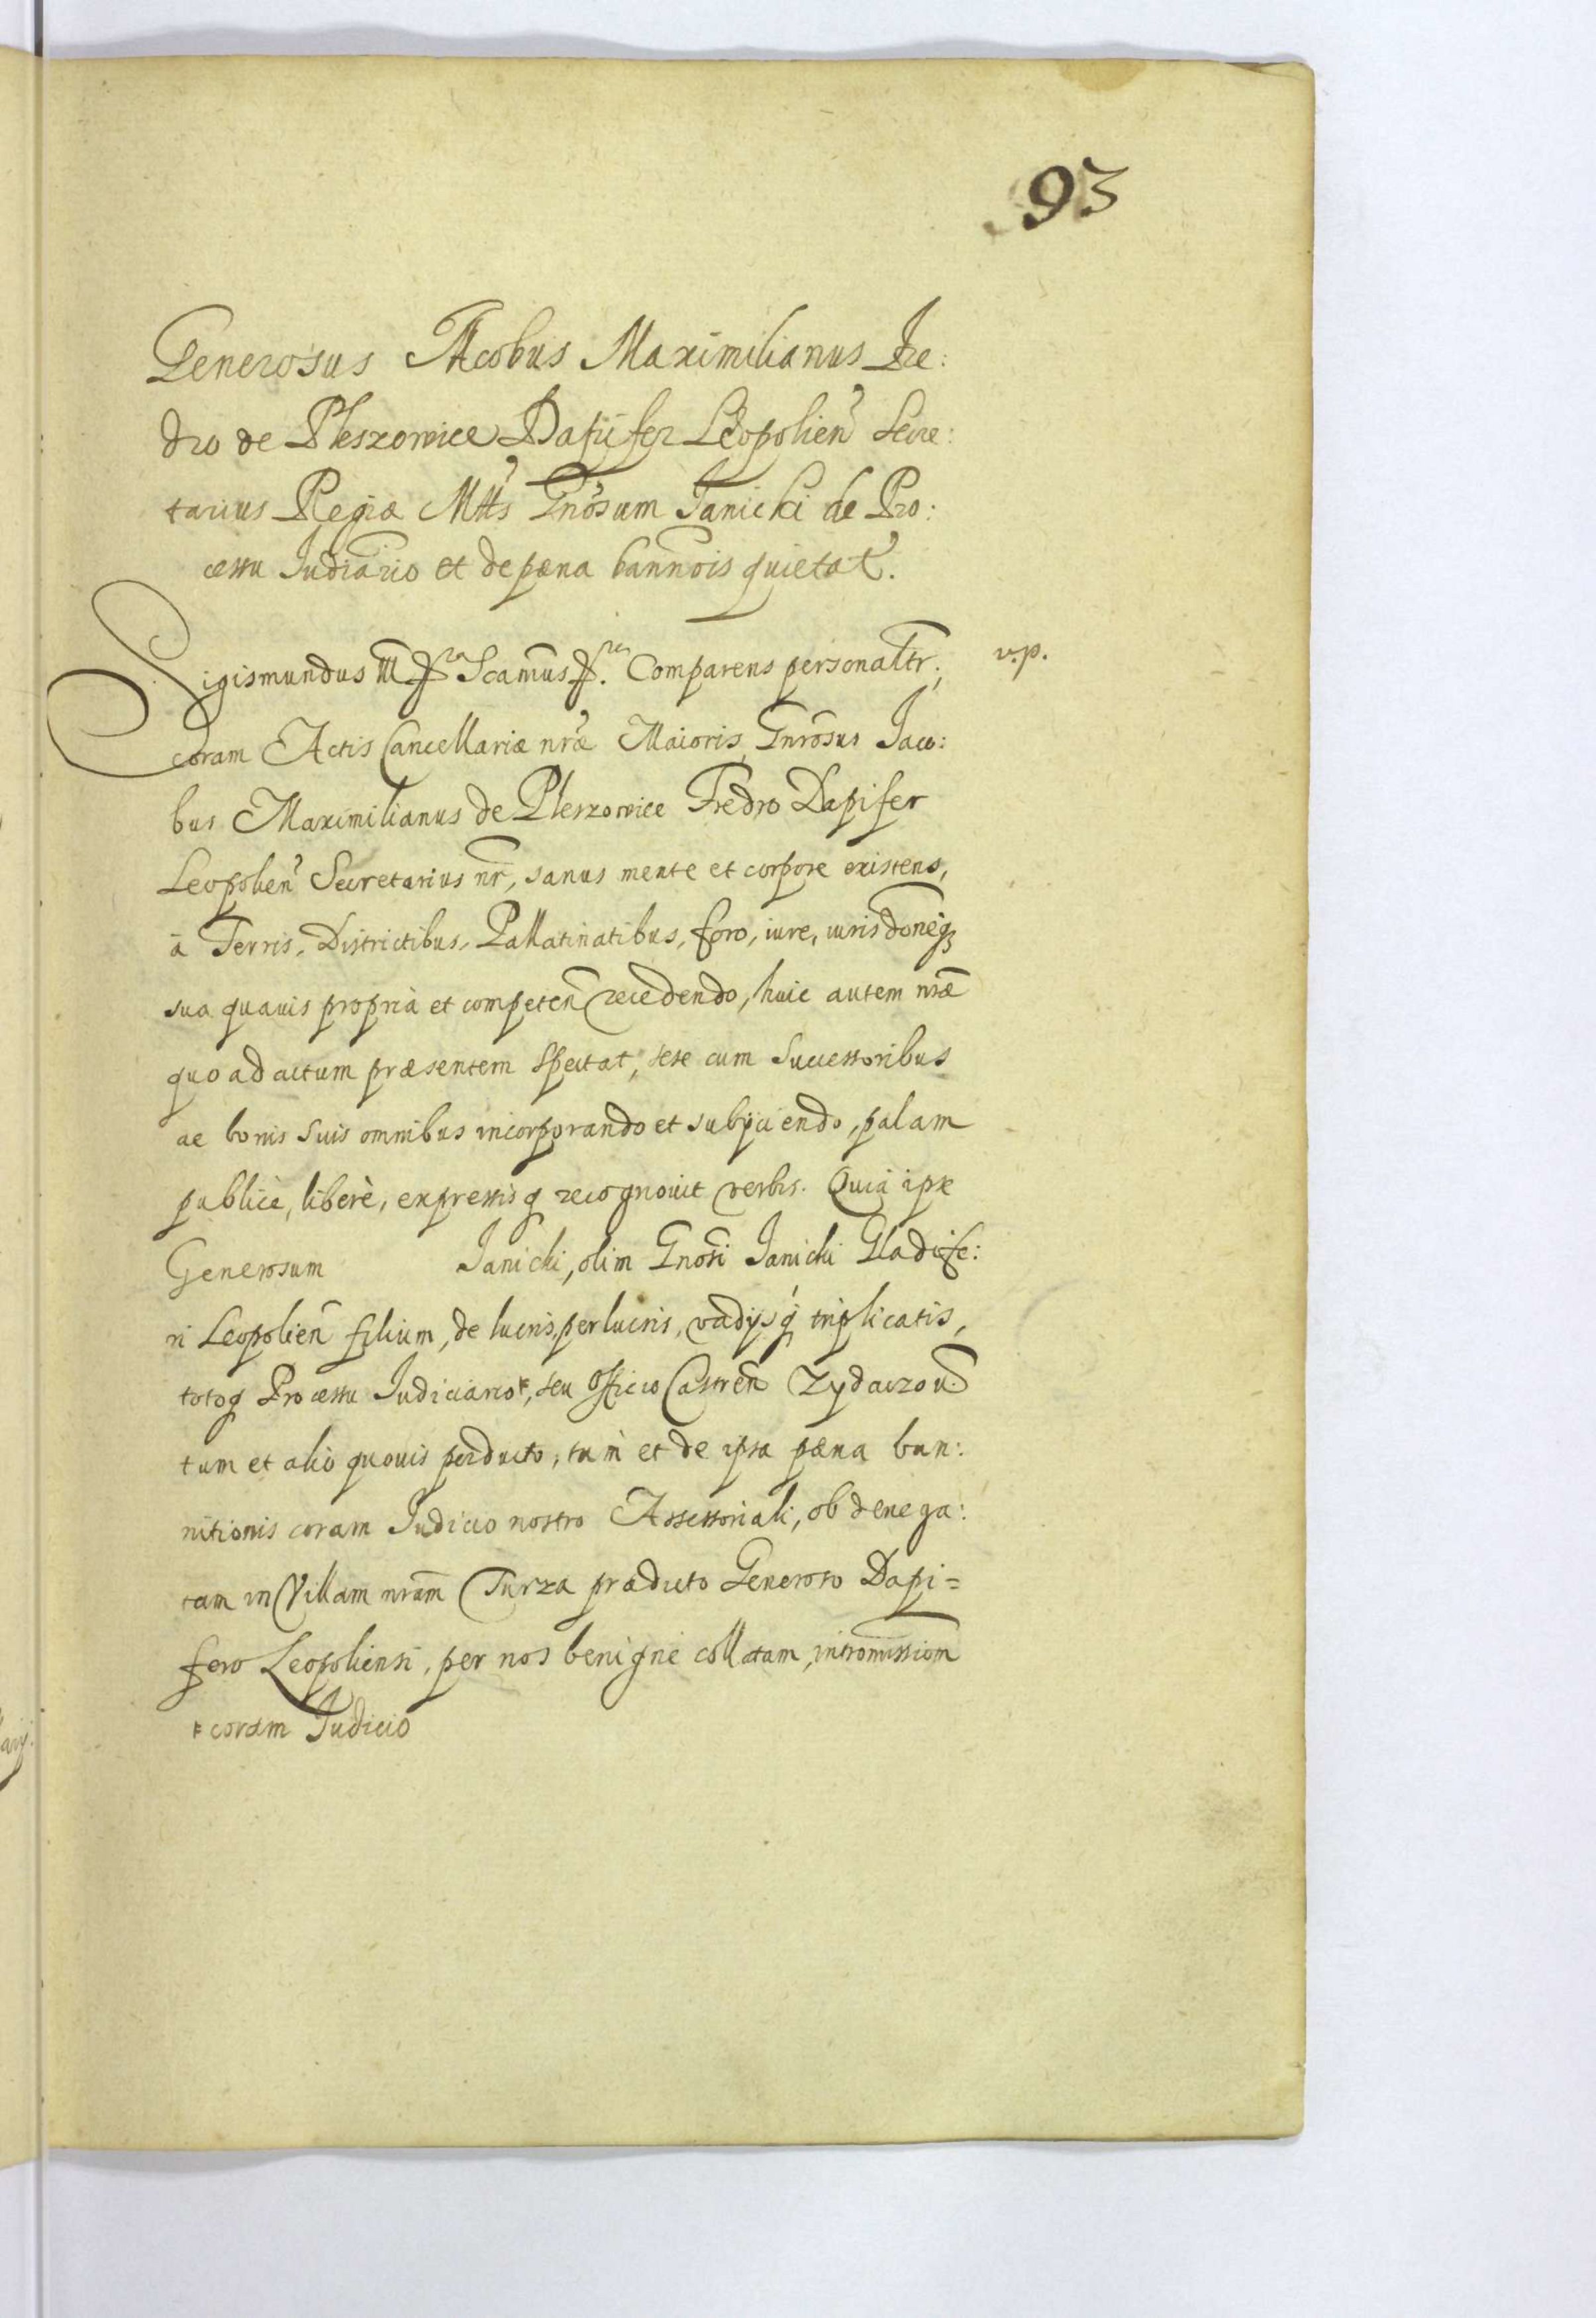 93
Generosus Jacobus Maximilianus Fre:
dro de Pleszowice Dapifer Leopolien̄ Secre:
tarius Regiæ Mttis Gnōsum Janicki de Pro:
cessu Judiārio et de pæna bannōis quietat.
Sigismundus III Scam̄us Comparens personaltr̄;
v.p.
coram Actis Cancellariæ nrǣ Maioris, Gnrōsus Jaco:
bus Maximilianus de Pleszowice Fredro Dapifer
Leopolien̄ Secretarius nr̄, sanus mente et corpore existens,
à Terris, Districtibus, Pallatinatibus, foro, iure, iurisdōneqꝫ
sua quauis propria et competen̄ recedendo, huic autem nrǣ
quo ad actum præsentem spectat, sese cum Successoribus
ac bonis suis omnibus incorporando et subijciendo, palam
publicè, liberè, expressisq recognouit verbis. Quia ipse
Generosum Janicki, olim Gnōsi Janicki Gladife:
ri Leopolien̄ filium, de lucris, perlucris, vadijsq triplicatis,
totoq Processu Judiciario⁺, seu Officio Castren̄ Zydaczou̅
tum et alio quouis perducto, tum et de ipsa pæna ban:
nitionis coram Judicio nostro Assessoriali, ob denega:
tam in Villam nram̄ Turza prædicto Generoso Dapi=
fero Leopoliensi, per nos benigne collatam, intromissionm̄
⁺ coram Judicio